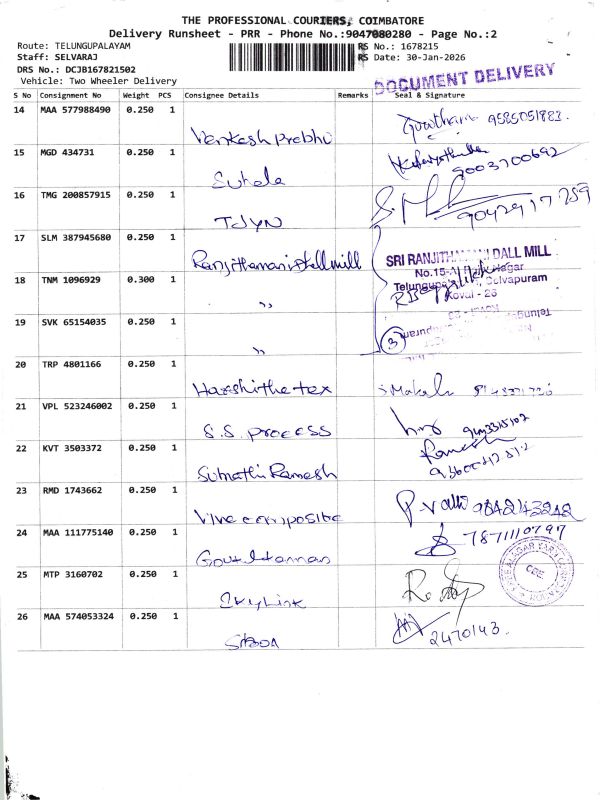 THE PROFESSIONAL COURIERS, COIMBATORE
Delivery Runsheet - PRR - Phone No.:9047080280 - Page No.:2
Route: TELUNGUPALAYAM RS No.: 1678215
Staff: SELVARAJ RS Date: 30-Jan-2026
DRS No.: DCJB167821502
Vehicle: Two Wheeler Delivery
DOCUMENT DELIVERY
S No Consignment No Weight PCS Consignee Details Remarks Seal & Signature
14 MAA 577988490 0.250 1 Venkesh Prabhu Gowtham 9585051883
15 MGD 434731 0.250 1 Suhela 9003700692
16 TMG 200857915 0.250 1 TJYN 9042917259
17 SLM 387945680 0.250 1 Ranjithamani Dall mill SRI RANJITHAMANI DALL MILL
No.15-A Nagar
Telungupalayam, Selvapuram
Kovai - 26
18 TNM 1096929 0.300 1 "
19 SVK 65154035 0.250 1 " 3
20 TRP 4801166 0.250 1 Harshithe tex
21 VPL 523246002 0.250 1 S.S. process
22 KVT 3503372 0.250 1 Sumathi Ramesh Ramesh
23 RMD 1743662 0.250 1 Vine composite P. Valli 9842143242
24 MAA 111775140 0.250 1 7871110797
25 MTP 3160702 0.250 1 Skylink
26 MAA 574053324 0.250 1 2470143